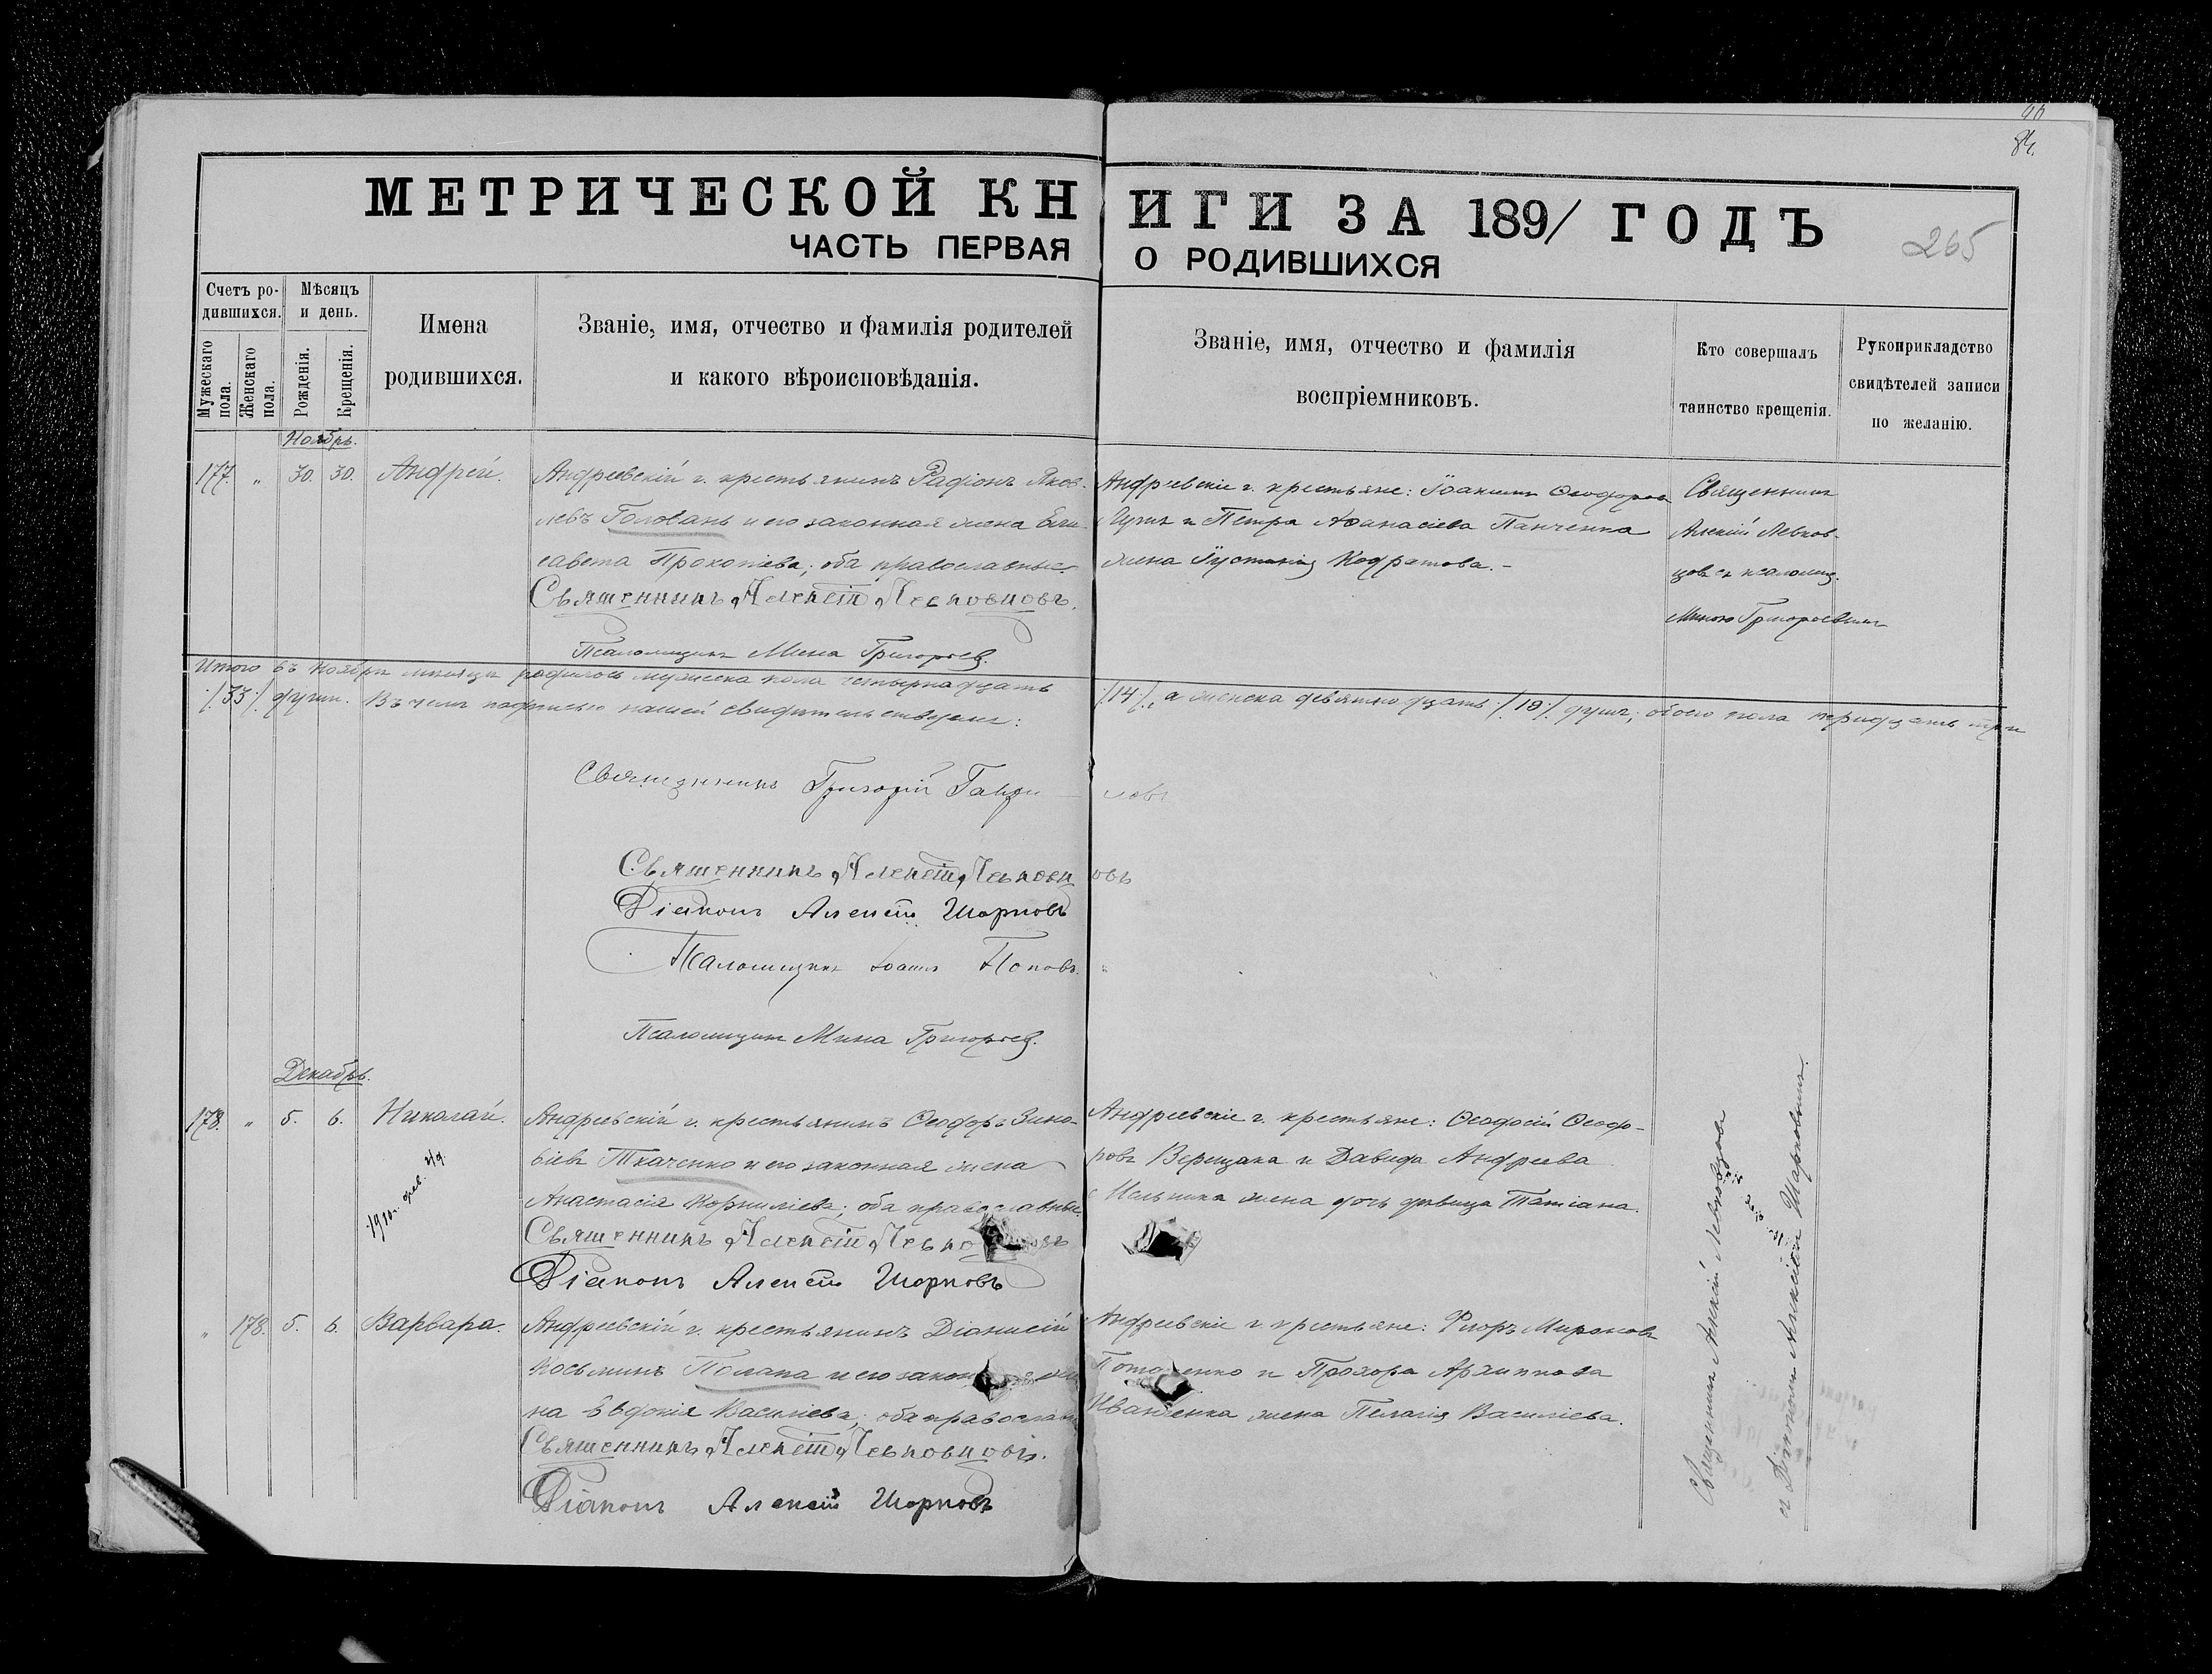 90
84.
МЕТРИЧЕСКОЙ КНИГИ ЗА 1891 ГОДЪ
265
ЧАСТЬ ПЕРВАЯ О РОДИВШИХСЯ
Счетъ родившихся.
Мужескаго пола.
Женскаго пола.
Мѣсяцъ и день.
Рожденія.
Крещенія.
Имена
родившихся.
Званіе, имя, отчество и фамилія родителей
и какого вѣроисповѣданія.
Званіе, имя, отчество и фамилія
воспріемниковъ.
Кто совершалъ
таинство крещенія.
Рукоприкладство
свидѣтелей записи
по желанію.
Ноябрь.
177. " 30. 30. Андрей.
Андреевскій г. крестьянинъ Радіонъ Яков-
левъ Головань и его законная жена Ели-
савета Прокопіева; оба православные.
Священникъ Алексій Левковцовъ.
Псаломщикъ Мина Григорьев.
Андреевскіе г. крестьяне: Іоакимъ Ѳеодоровъ
и Петра Аѳанасіева Панченка
жена Іустинія Кодратова.-
Священникъ
Алексій Левков-
цовъ съ псаломщ.
Миною Григорьевымъ
Итого въ Ноябрѣ мѣсяцѣ родилось мужеска пола четырнадцать /14/, а женска девятнадцать /19/ душъ; обоего пола тридцать три
/33/ души. Въ чемъ подписью нашей свидѣтельствуемъ:
Священникъ Григорій
Священникъ Алексій Левковцовъ
Діаконъ Алексій Шарковъ
Псаломщикъ Іоаннъ Поповъ.
Псаломщикъ Мина Григорьев.
Декабрь.
178. " 5. 6. Николай.
1910. фев.
Андреевскій г. крестьянинъ Ѳеодоръ Зино-
віевъ Ткаченко и его законная жена
Анастасія Корниліева; оба православные.
Священникъ Алексій Левковцовъ
Діаконъ Алексій Шарковъ
Андреевскіе г. крестьяне: Ѳеодосій Ѳеодо-
ровъ Верещака и Давида Андреева
Мельника жена дочь дѣвица Татіана.
" 178. 5. 6. Варвара.
Андреевскій г. крестьянинъ Діонисій
Косьминъ Полапа и его законная же
на Евдокія Василіева; оба православн
Священникъ Алексій Левковцовъ.
Діаконъ Алексій Шарковъ
Андреевскіе г. крестьяне: Флоръ Мироновъ
и Прохора Архиппова
Иванченка жена Пелагія Василіева.
Священникъ Алексій Левковцовъ
съ Діакономъ Алексіемъ Шарковымъ.